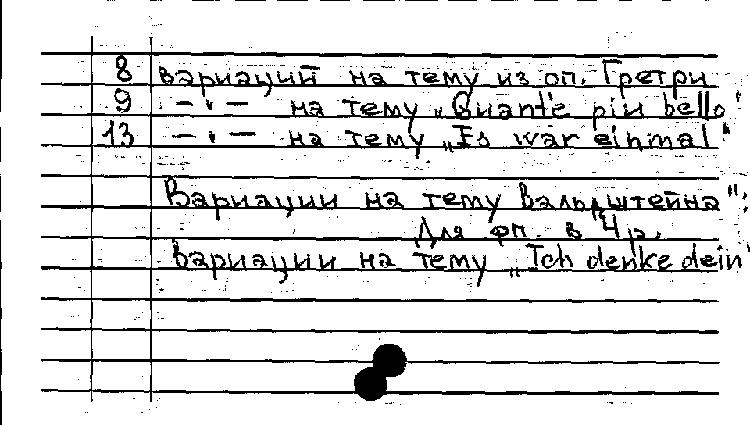 8 вариаций на тему из оп. Гретри
9 — " — на тему „Quant'e piu bello"
13 — " — на тему „Es war einmal"
Вариации на тему Вальдштейна";
Для фп. в 4 р.
Вариации на тему „Ich denke dein"